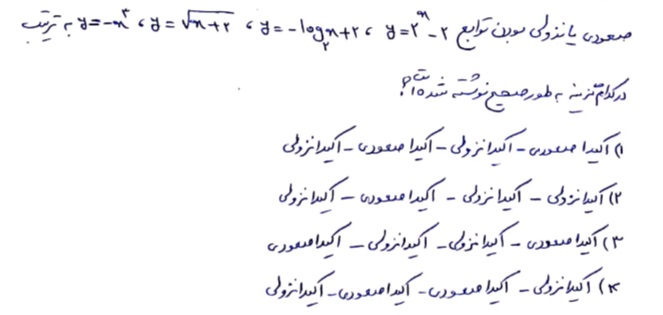 صعودی یا نزولی بودن توابع y=۲^x-۲ ، y=-log_۲ x+۲ ، y=√x+۲ ، y=-x^۳ به ترتیب
در کدام گزینه به طور صحیح نوشته شده است؟
۱) اکیدا صعودی - اکیدا نزولی - اکیدا صعودی - اکیدا نزولی
۲) اکیدا نزولی - اکیدا نزولی - اکیدا صعودی - اکیدا نزولی
۳) اکیدا صعودی - اکیدا نزولی - اکیدا نزولی - اکیدا صعودی
۴) اکیدا نزولی - اکیدا صعودی - اکیدا صعودی - اکیدا نزولی